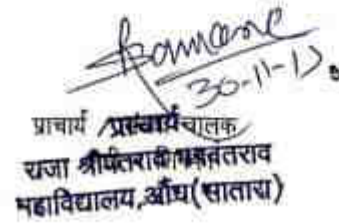 30-11-17
प्राचार्य प्राचार्य चालक
राजा श्रीपतराव भगवंतराव
महाविद्यालय, औंध(सातारा)